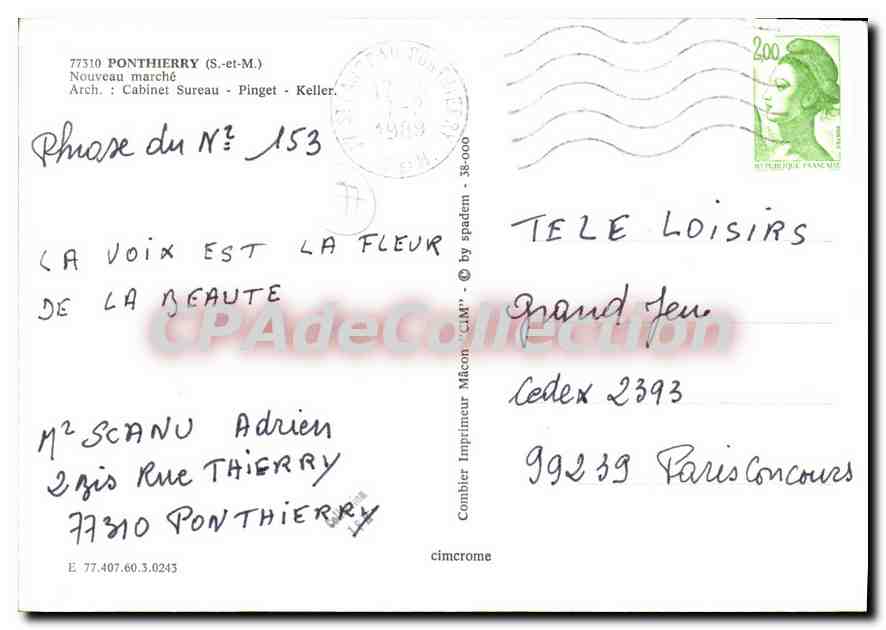 77310 PONTHIERRY (S.-et-M.)
Nouveau marché
Arch. : Cabinet Sureau - Pinget - Keller.
Phrase du Nº 153
LA VOIX EST LA FLEUR
DE LA BEAUTE
Mr SCANU Adrien
2 Bis Rue THIERRY
77310 PONTHIERRY
E 77.407.60.3.0243
Combier Imprimeur Mâcon "CIM" - © by spadem - 38-000
cimcrome
PONTHIERRY
1989
77
2,00
REPUBLIQUE FRANÇAISE
TELE LOISIRS
Grand Jeu
Cedex 2393
99239 Paris Concours
CPAdeCollection